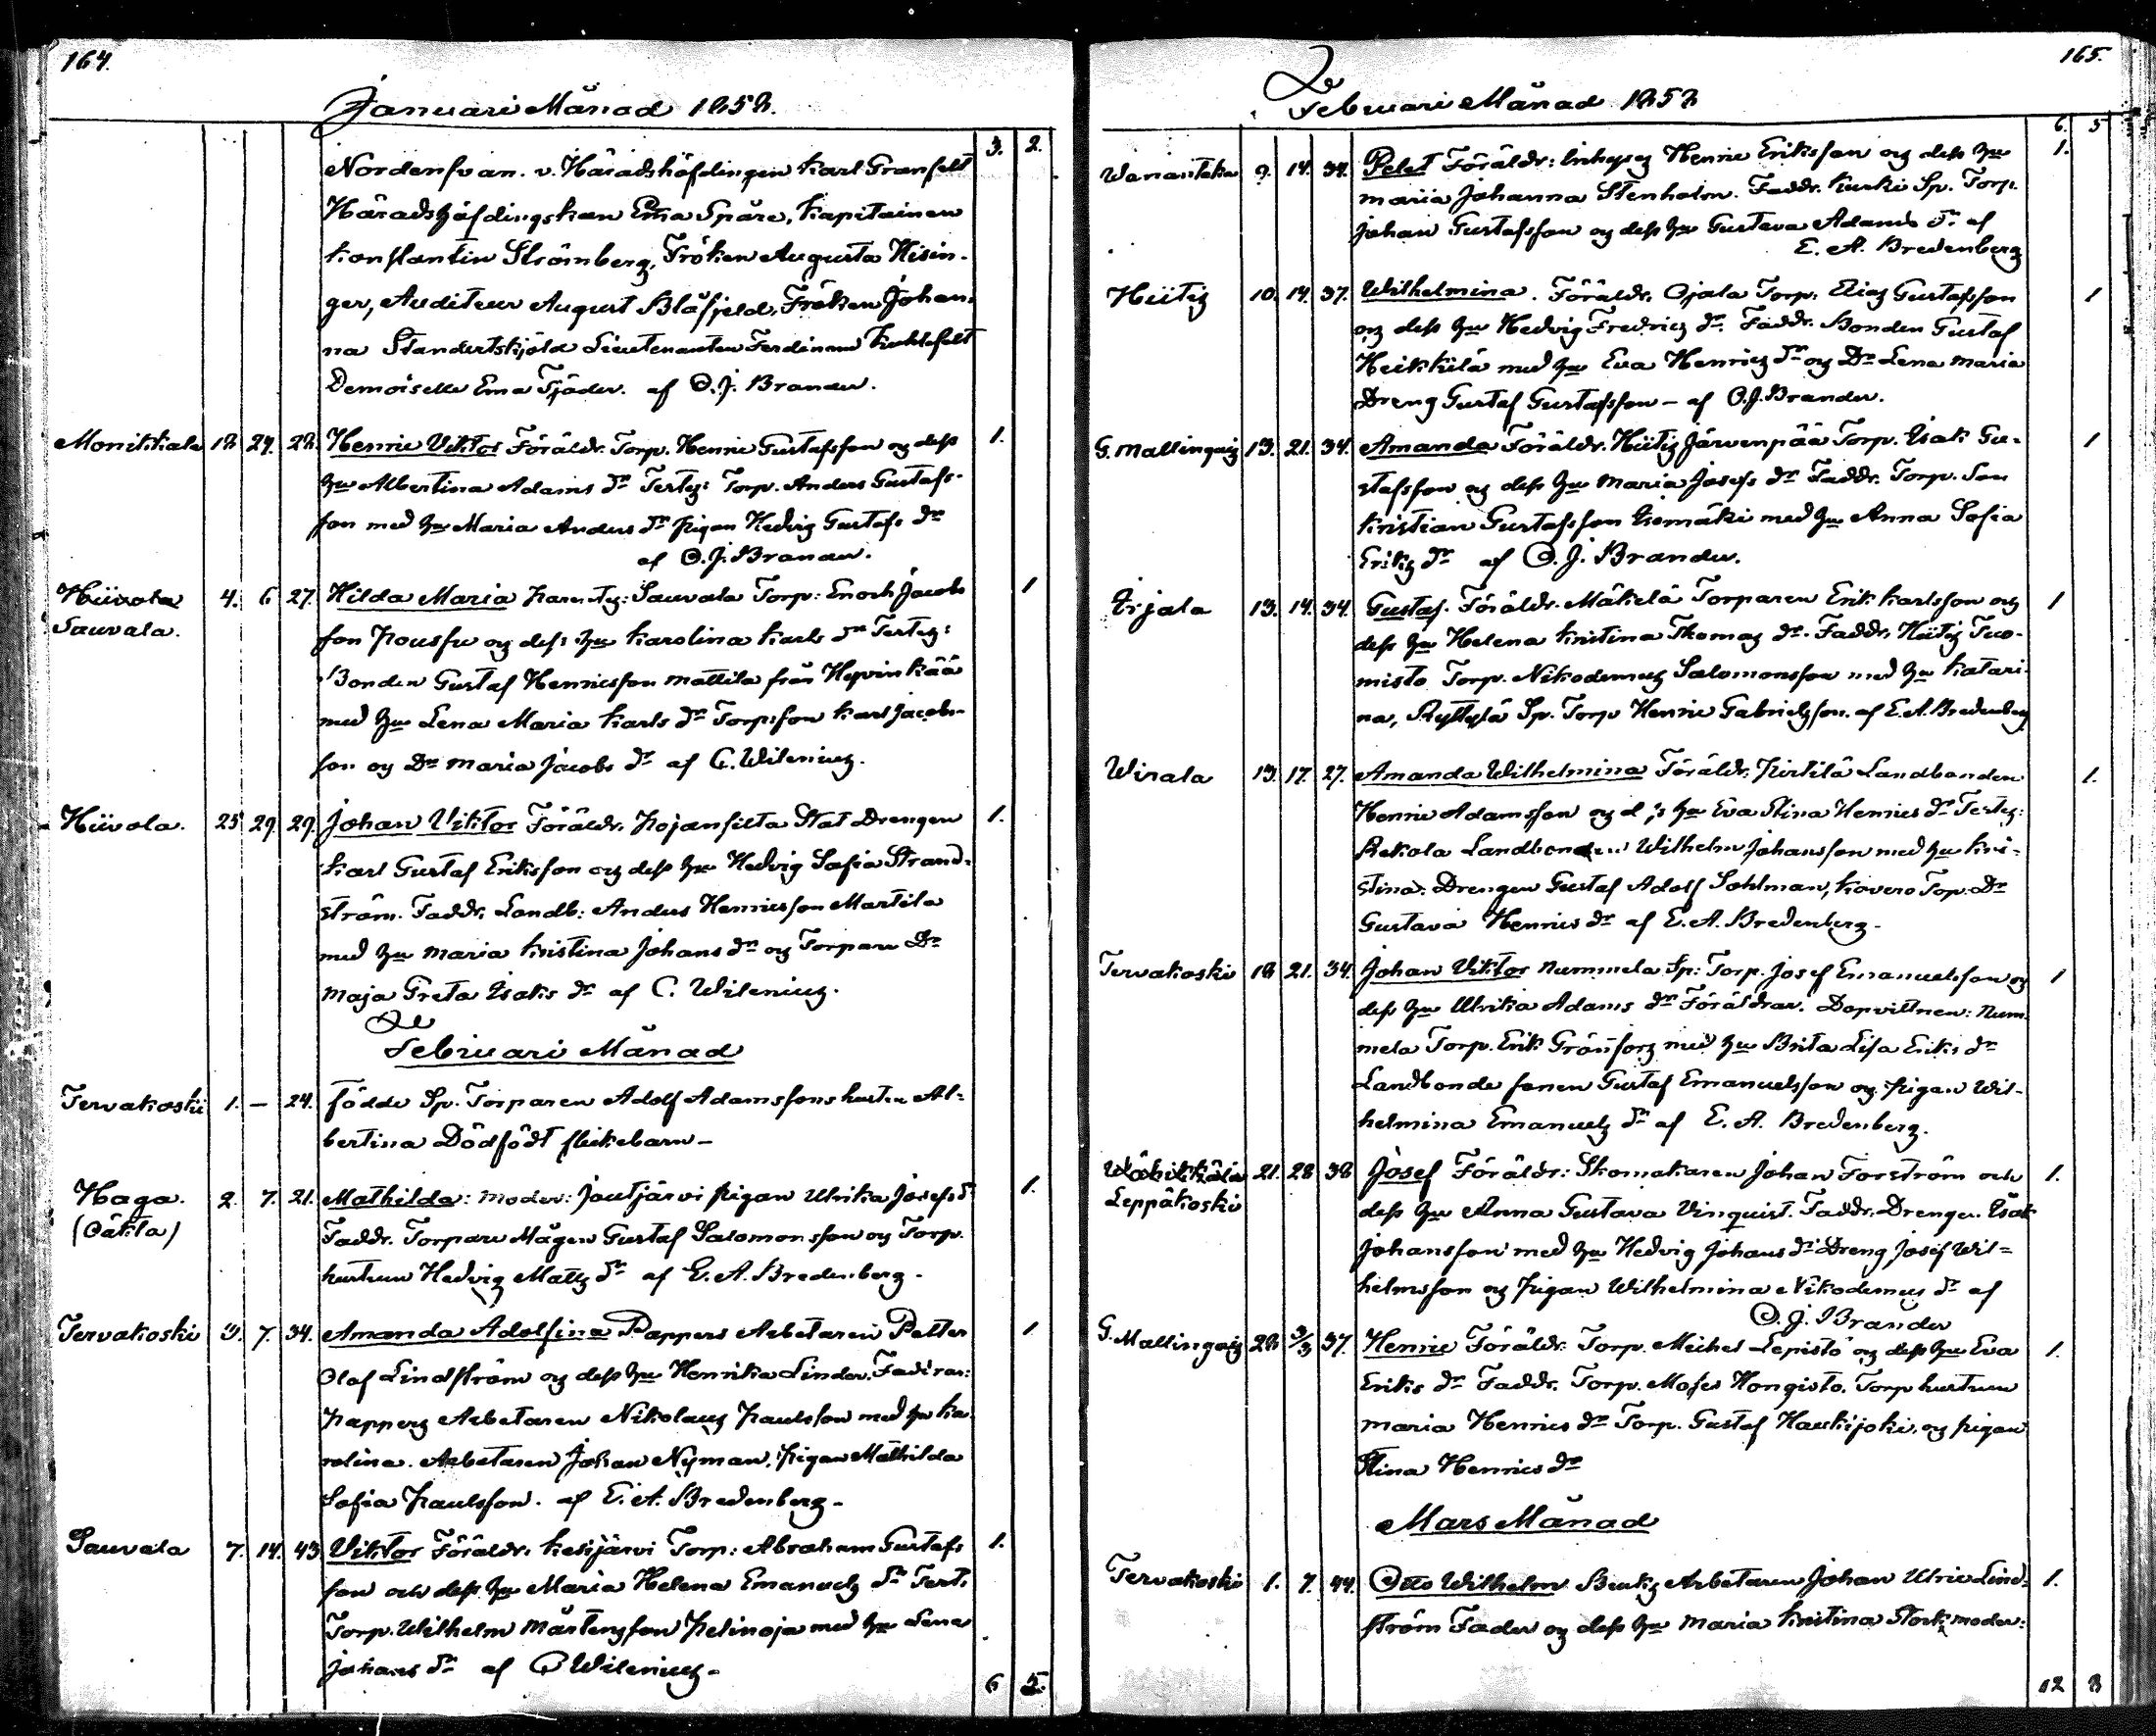 164.
Januari Månad 1858.
3. 2.
Nordensvan. v. Häradshöfdingen Karl Granfelt
Häradshöfdingskan Em̄a Spåre, Kapitainen
Konstantin Strömberg, Fröken Augusta Hisin-
ger, Auditeur August Blåfjeld, Fröken Johan-
na Standertskjöld Lieutenanten Ferdinand
Demoiselle Ema Tjäder. af C. J. Brander.
Monikkala 18 24. 28. Henric Viktor Föräldr. Torp. Henric Gustafsson og dess 1.
Hu Albertina Adams dr Testes: Torp. Anders Gustafs-
son med Hu Maria Anders dr Pigan Hedvig Gustafs dr
af C. J. Brander.
Hüvola 4. 6 27. Hilda Maria Parentes: Sauvala Torp: Enoch Jacobs 1
Sauvala.
son Pousfu og des: Hu Karolina Karls dr Testes:
Bonden Gustaf Henricsson Mattila från Hyvinkää
med Hu Lena Maria Karls dr Torpsson Karl Jacobs-
son og Dr Maria Jacobs dr af C. Wilenius.
Hüvola. 25 29. 29. Johan Viktor Föräldr. Stat Drengen 1.
Karl Gustaf Eriksson og dess Hu Hedvig Sofia Strand-
ström. Faddr. Landb: Anders Henricsson Martila
med Hu Maria Kristina Johans dr og Torpare Dr
Maja Greta Isaks dr af C. Wilenius.
Februari Månad
Tervakoski 1. — 24. födde Sp. Torparen Adolf Adamssons hustru Al-
bertina Dödfödt flickebarn —
Haga. 2. 7. 21. Mathilda: Moder: Jautjärvi Pigan Ulrika Josefs d 1.
(Oäkta)
Faddr. Torpare Mågen Gustaf Salomonsson og Torp.
hustrun Hedvig Matts dr af E. A. Bredenberg.
Tervakoski 3. 7. 34. Amanda Adolfina Pappers Arbetaren Petter 1
Olof Lindström og dess Hu Henrika Linder. Faddrar:
Pappers Arbetaren Nikolaus Paulsson med Hu Ka-
rolina. Arbetaren Johan Nyman, Pigan Mathilda
Sofia Paulsson. af E. A. Bredenberg.
Sauvala 7. 14. 43 Viktor Föräldr. Kesijärvi Torp: Abraham Gustafs 1.
son och dess Hu Maria Helena Emanuels dr Test.
Torp. Wilhelm Mårtensson Pelinoja med Hu Lena
Johans dr af C Wilenius.
6 5.
165.
Februari Månad 1858
6. 5
Wanantaka 9. 14. 34. Peter Föräldr: Inhyses Henric Eriksson og dess Hu 1.
Maria Johanna Stenholm. Faddr. Kurki Sp. Torp.
Johan Gustafsson og dess Hu Gustava Adams dr af
E. A. Bredenberg
Hütis 10. 14. 37. Wilhelmina. Föräldr. Ojala Torp: Elias Gustafsson 1
og dess Hu Hedvig Fredrics dr. Faddr. Bonden Gustaf
Heikkilä med Hu Eva Henrics dr og Dr Lena Maria
Dreng Gustaf Gustafsson — af C. J. Brander.
G. Mallingais 13. 21. 34. Amanda Föräldr. Hütis Järvenpää Torp. Isak Gu- 1
stafsson og dess Hu Maria Josefs dr Faddr. Torp. Son
Kristian Gustafsson Isomäki med Hu Anna Sofia
Eriks dr af C. J. Brander.
Erjala 13. 14. 34. Gustaf. Föräldr. Mäkelä Torparen Erik Karlsson og 1
dess Hu Helena Kristina Thomas dr. Faddr. Hütis Tuo-
misto Torp. Nikodemus Salomonsson med Hu Katari-
na, Ryttylä Sp. Torp Henric Gabrielsson. af E. A. Bredenberg
Wirala 13. 17. 27. Amanda Wilhelmina Föräldr. Pirtilä Landbonden 1.
Henric Adamsson og d:s Hu Eva Stina Henrics dr Testes:
Rekola Landbonden Wilhelm Johansson med Hu Kri-
stina. Drengen Gustaf Adolf Sohlman, Kovero Torp. Dr
Gustava Henrics dr af E. A. Bredenberg.
Tervakoski 18 21. 34. Johan Viktor Nummela Sp: Torp. Josef Emanuelsson og 1
dess Hu Ulrika Adams dr Föräldrar. Dopvittnen: Num-
mela Torp. Erik Grönfors med Hu Brita Lisa Eriks dr
Landbonde sonen Gustaf Emanuelsson og Pigan Wil-
helmina Emanuels dr af E. A. Bredenberg.
Wäkikkälä 21. 28 38 Josef Föräldr: Skomakaren Johan Forström och 1.
Leppäkoski
dess Hu Anna Gustava Vinquist. Faddr. Drengen Isak
Johansson med Hu Hedvig Johans dr Dreng Josef Wil-
helmsson og Pigan Wilhelmina Nikodemus dr af
C. J. Brander
G. Mallingais 28 3/3 37. Henric Föräldr. Torp. Michel Lepistö og dess Hu Eva 1.
Eriks dr Faddr. Torp. Moses Hongisto. Torp hustrun
Maria Henrics dr Torp. Gustaf Haukijoki og Pigan
Stina Henrics dr
Mars Månad
Tervakoski 1. 7. 44. Otto Wilhelm Bruks Arbetaren Johan Ulric Lind- 1.
ström Fader og dess Hu Maria Kristina Stork moder:
12 8